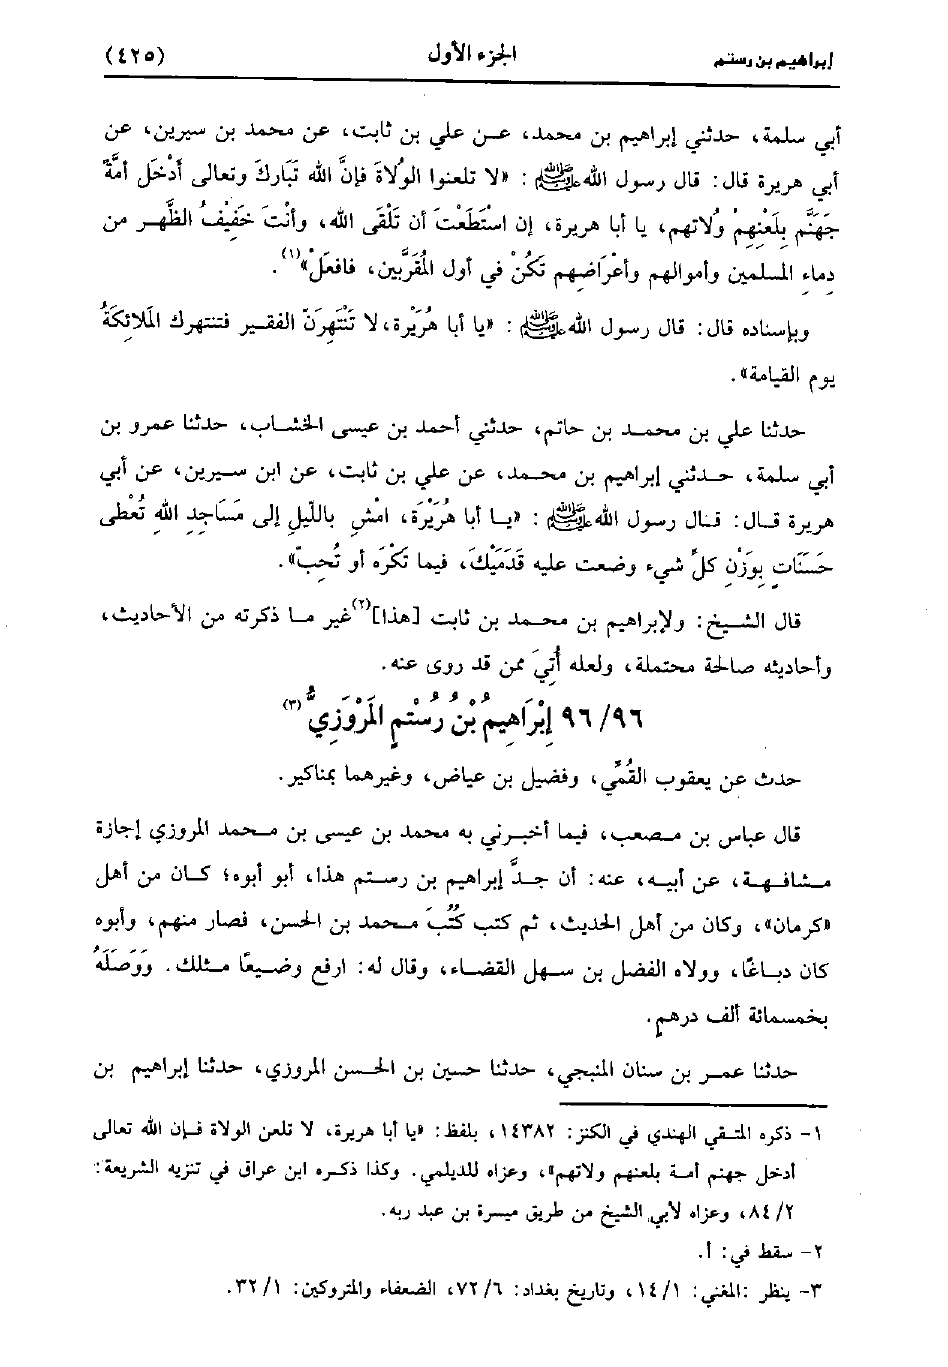 إبراهيم بن رستم الجزء الأول (٤٢٥)
أبي سلمة، حدثني إبراهيم بن محمد، عن علي بن ثابت، عن محمد بن سيرين، عن
أبي هريرة قال: قال رسول الله ﷺ : «لا تلعنوا الوُلَاةَ فإنَّ الله تَبَارَكَ وتعالى أَدْخَلَ أمةً
جَهَنَّم بِلَعْنِهِمْ وُلَاتهم، يا أبا هريرة، إن اسْتَطَعْتَ أن تَلْقَى الله، وأنْتَ خَفِيفُ الظَّهر من
دماءِ المسلمين وأموالهم وأعْرَاضِهم تَكُنْ في أول المُقَرَّبين، فافعَلْ»(١).
وبإسناده قال: قال رسول الله ﷺ : «يا أبا هُرَيْرة، لا تَنْتَهِرَنّ الفقير فتنتهرك المَلَائِكَةُ
يوم القيامة».
حدثنا علي بن محمد بن حاتم، حدثني أحمد بن عيسى الخشاب، حدثنا عمرو بن
أبي سلمة، حدثني إبراهيم بن محمد، عن علي بن ثابت، عن ابن سيرين، عن أبي
هريرة قال: قال رسول الله ﷺ : «يا أبا هُرَيْرَة، امْشِ بالليلِ إلى مَسَاجِدِ الله تُعْطَى
حَسَنَاتٍ بِوَزْنِ كلِّ شيء وضعت عليه قَدَمَيْكَ، فيما تَكْرَه أو تُحِبّ».
قال الشيخ: ولإبراهيم بن محمد بن ثابت [هذا](٢) غير ما ذكرته من الأحاديث،
وأحاديثه صالحة محتملة، ولعله أُتِيَ ممن قد روى عنه.
٩٦/ ٩٦ إِبْرَاهِيمُ بْنُ رُسْتُمِ المَرْوَزِيُّ(٣)
حدث عن يعقوب القُمِّي، وفضيل بن عياض، وغيرهما بمناكير.
قال عباس بن مصعب، فيما أخبرني به محمد بن عيسى بن محمد المروزي إجازة
مشافهة، عن أبيه، عنه: أن جدَّ إبراهيم بن رستم هذا، أبو أبوه؛ كان من أهل
«كرمان»، وكان من أهل الحديث، ثم كتب كُتُبَ محمد بن الحسن، فصار منهم، وأبوه
كان دباغًا، وولاه الفضل بن سهل القضاء، وقال له: ارفع وضيعًا مثلك. وَوَصَلَهُ
بخمسمائة ألف درهم.
حدثنا عمر بن سنان المنبجي، حدثنا حسين بن الحسن المروزي، حدثنا إبراهيم بن
١- ذكره المتقي الهندي في الكنز: ١٤٣٨٢، بلفظ: «يا أبا هريرة، لا تلعن الولاة فإن الله تعالى
أدخل جهنم أمة بلعنهم ولاتهم»، وعزاه للديلمي. وكذا ذكره ابن عراق في تنزيه الشريعة:
٢/ ٨٤، وعزاه لأبي الشيخ من طريق ميسرة بن عبد ربه.
٢- سقط في: أ.
٣- ينظر :المغني: ١/ ١٤، وتاريخ بغداد: ٦/ ٧٢، الضعفاء والمتروكين: ١/ ٣٢.